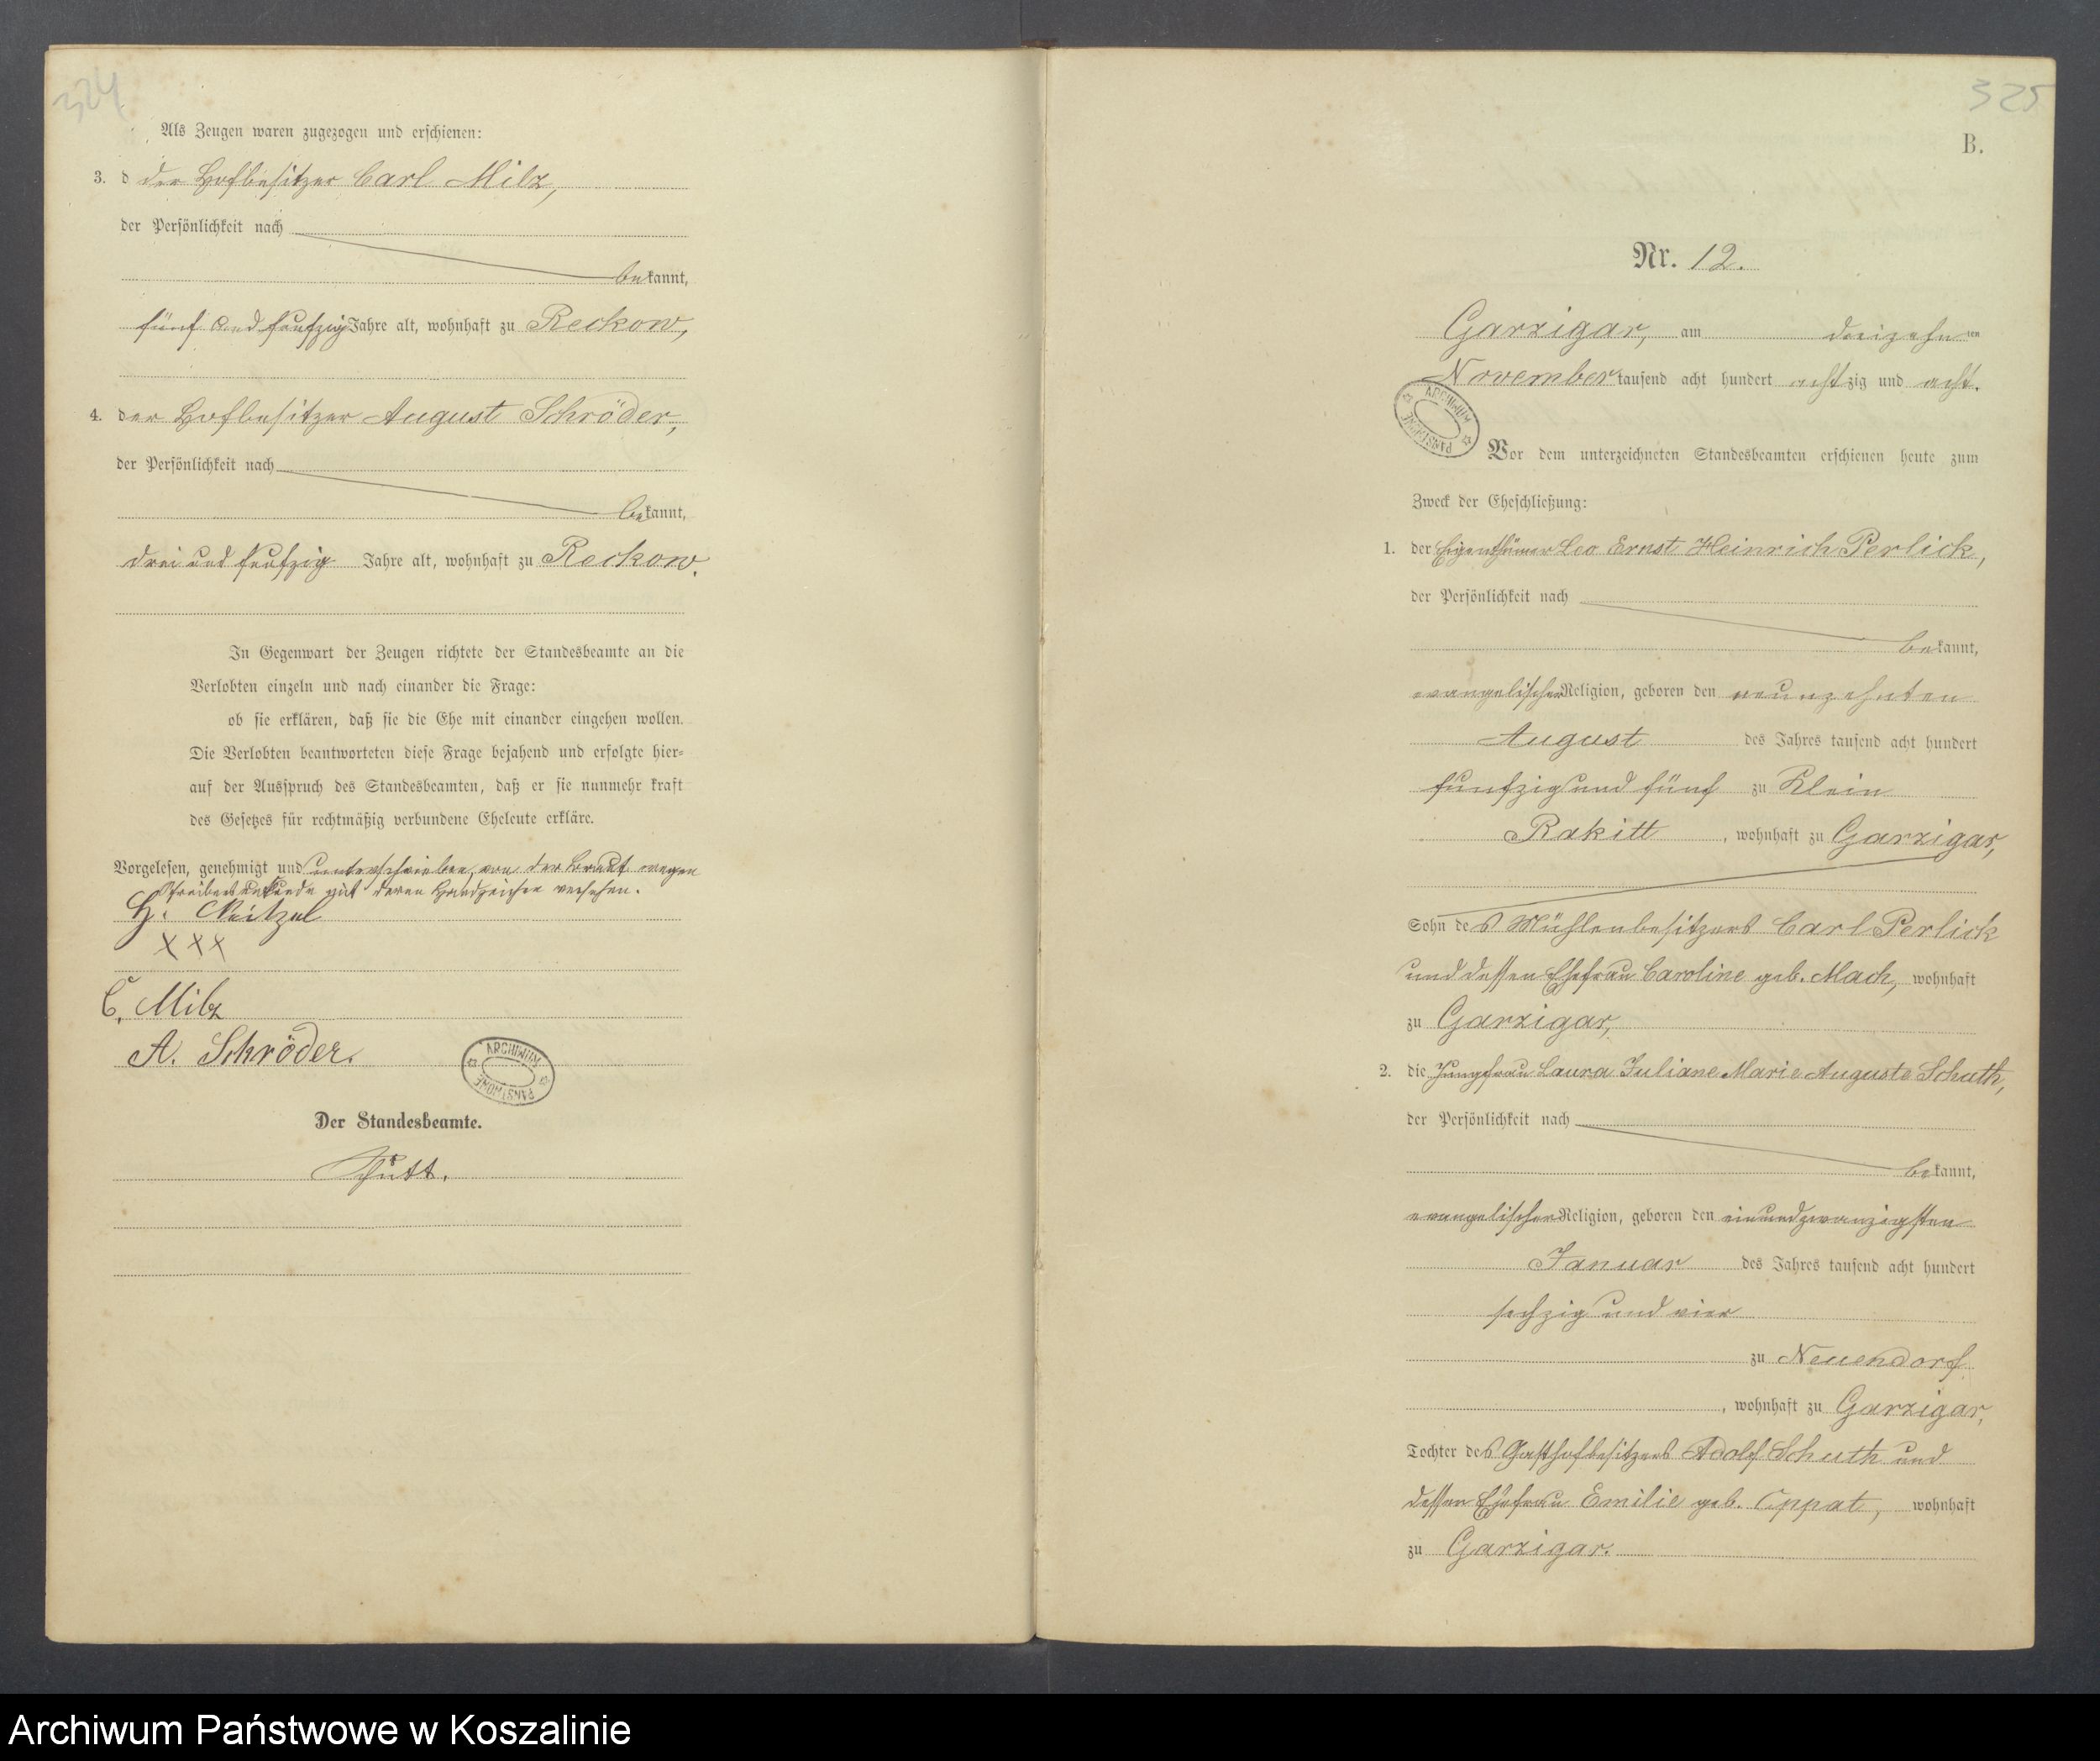 324
Als Zeugen waren zugezogen und erschienen:
3. d der Hofbesitzer Carl Milz,
der Persönlichkeit nach
bekannt,
fünf und funfzig Jahre alt, wohnhaft zu Reckow,
4. der Hofbesitzer August Schröder,
der Persönlichkeit nach
bekannt,
drei und funfzig Jahre alt, wohnhaft zu Reckow.
In Gegenwart der Zeugen richtete der Standesbeamte an die
Verlobten einzeln und nach einander die Frage:
ob sie erklären, daß sie die Ehe mit einander eingehen wollen.
Die Verlobten beantworteten diese Frage bejahend und erfolgte hier-
auf der Ausspruch des Standesbeamten, daß er sie nunmehr kraft
des Gesetzes für rechtmäßig verbundene Eheleute erkläre.
Vorgelesen, genehmigt und unterschrieben, von der Braut wegen
Schreibensunkunde mit deren Handzeichen versehen.
H. Neitzel
XXX
C. Milz
A. Schröder.
ARCHIWUM PAŃSTWOWE
Der Standesbeamte.
325
B.
Nr. 12.
Garzigar, am dreizehnten
November tausend acht hundert achtzig und acht.
ARCHIWUM PAŃSTWOWE
Vor dem unterzeichneten Standesbeamten erschienen heute zum
Zweck der Eheschließung:
1. der Eigenthümer Leo Ernst Heinrich Perlick,
der Persönlichkeit nach
bekannt,
evangelischer Religion, geboren den neunzehnten
August des Jahres tausend acht hundert
funfzig und fünf zu Klein
Rakitt, wohnhaft zu Garzigar,
Sohn des Mühlenbesitzers Carl Perlick
und dessen Ehefrau Caroline geb. Mach, wohnhaft
zu Garzigar,
2. die Jungfrau Laura Juliane Marie Auguste Schuth,
der Persönlichkeit nach
bekannt,
evangelischer Religion, geboren den einundzwanzigsten
Januar des Jahres tausend acht hundert
sechzig und vier
zu Neuendorf
, wohnhaft zu Garzigar,
Tochter des Gasthofbesitzers Adolf Schuth und
dessen Ehefrau Emilie geb. wohnhaft
zu Garzigar.
Archiwum Państwowe w Koszalinie